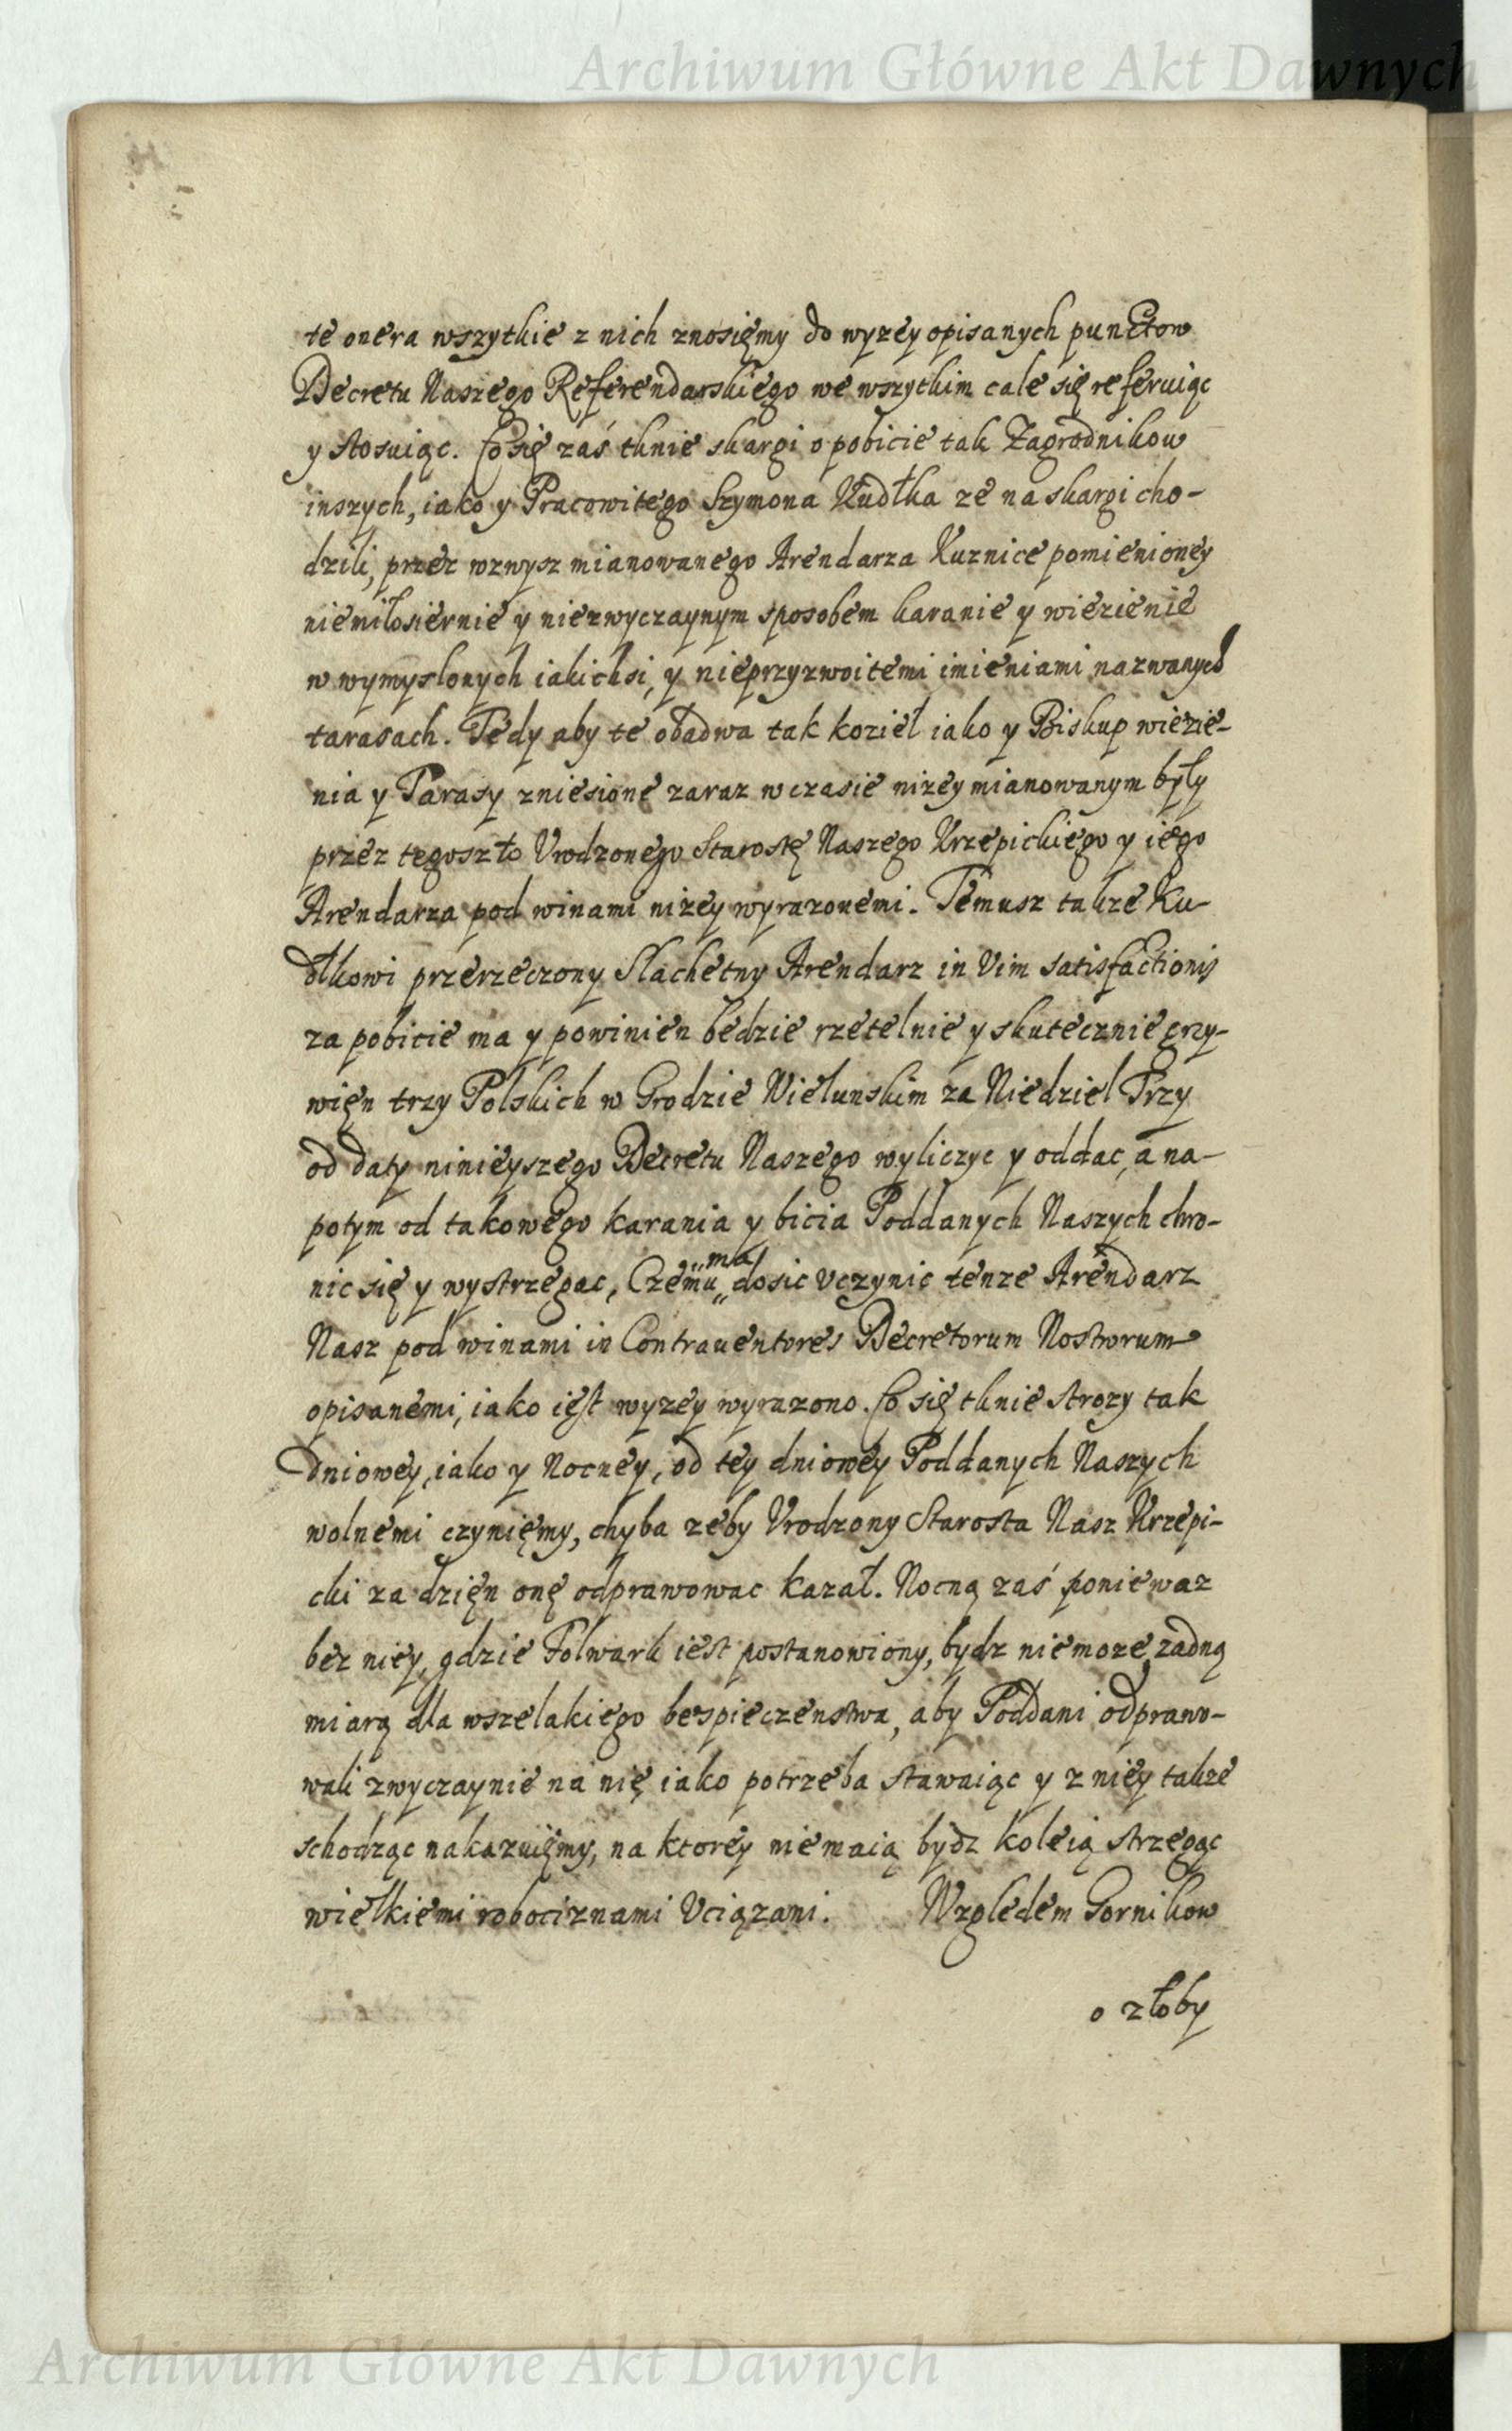 Archiwum Główne Akt Dawnych
te onera wszytkie z nich znosięmy do wyzey opisanych punctow
Decretu Naszego Referendarskiego we wszytkim cale się referuiąc
y stosuiąc. Co się zaś tknie skargi o pobicie tak Zagrodnikow
inszych, iako y Pracowitego Szymona Kudłka ze na skargi cho-
dzili, przez wzwysz mianowanego Arendarza Kuznice pomienioney
niemiłosiernie y niezwyczaynym sposobem karanie y wiezienie
w wymyslonych iakichsi, y nieprzyzwoitemi imieniami nazwanych
tarasach. Tedy aby te obadwa tak kozieł iako y Biskup wiezie-
nia y Tarasy zniesione zaraz w czasie nizey mianowanym były
przez tegoszto Vrodzonego Starostę Naszego Krzepickiego y iego
Arendarza pod winami nizey wyrazonemi. Temusz takze Ku-
dłkowi przerzeczony Slachetny Arendarz in Vim satisfactionis
za pobicie ma y powinien będzie rzetelnie y skutecznie grzy-
więn trzy Polskich w Grodzie Wielunskim za Niedziel Trzy
od daty ninieyszego Decretu Naszego wyliczyc y oddac, a na-
potym od takowego karania y bicia Poddanych Naszych chro-
nic się y wystrzegac, Czemu „ma„ dosic Vczynic tenze Arendarz
Nasz pod winami in Contrauentores Decretorum Nostrorum
opisanemi, iako iest wyzey wyrazono. Co się tknie strozy tak
dniowey, iako y Nocney, od tey dniowey Poddanych Naszych
wolnemi czynięmy, chyba zeby Vrodzony Starosta Nasz Krzepi-
cki za dzięn onę odprawowac kazał. Nocną zaś poniewaz
bez niey, gdzie Folwark iest postanowiony, bydz niemoze, zadną
miarą dla wszelakiego bespieczenstwa, aby Poddani odprawo-
wali zwyczaynie na nię iako potrzeba stawaiąc y z niey takze
schodząc nakazuięmy, na ktorey niemaią bydz koleią strzegąc
wielkiemi robociznami Vciązani. Względem Gornikow
o złoby
Archiwum Główne Akt Dawnych